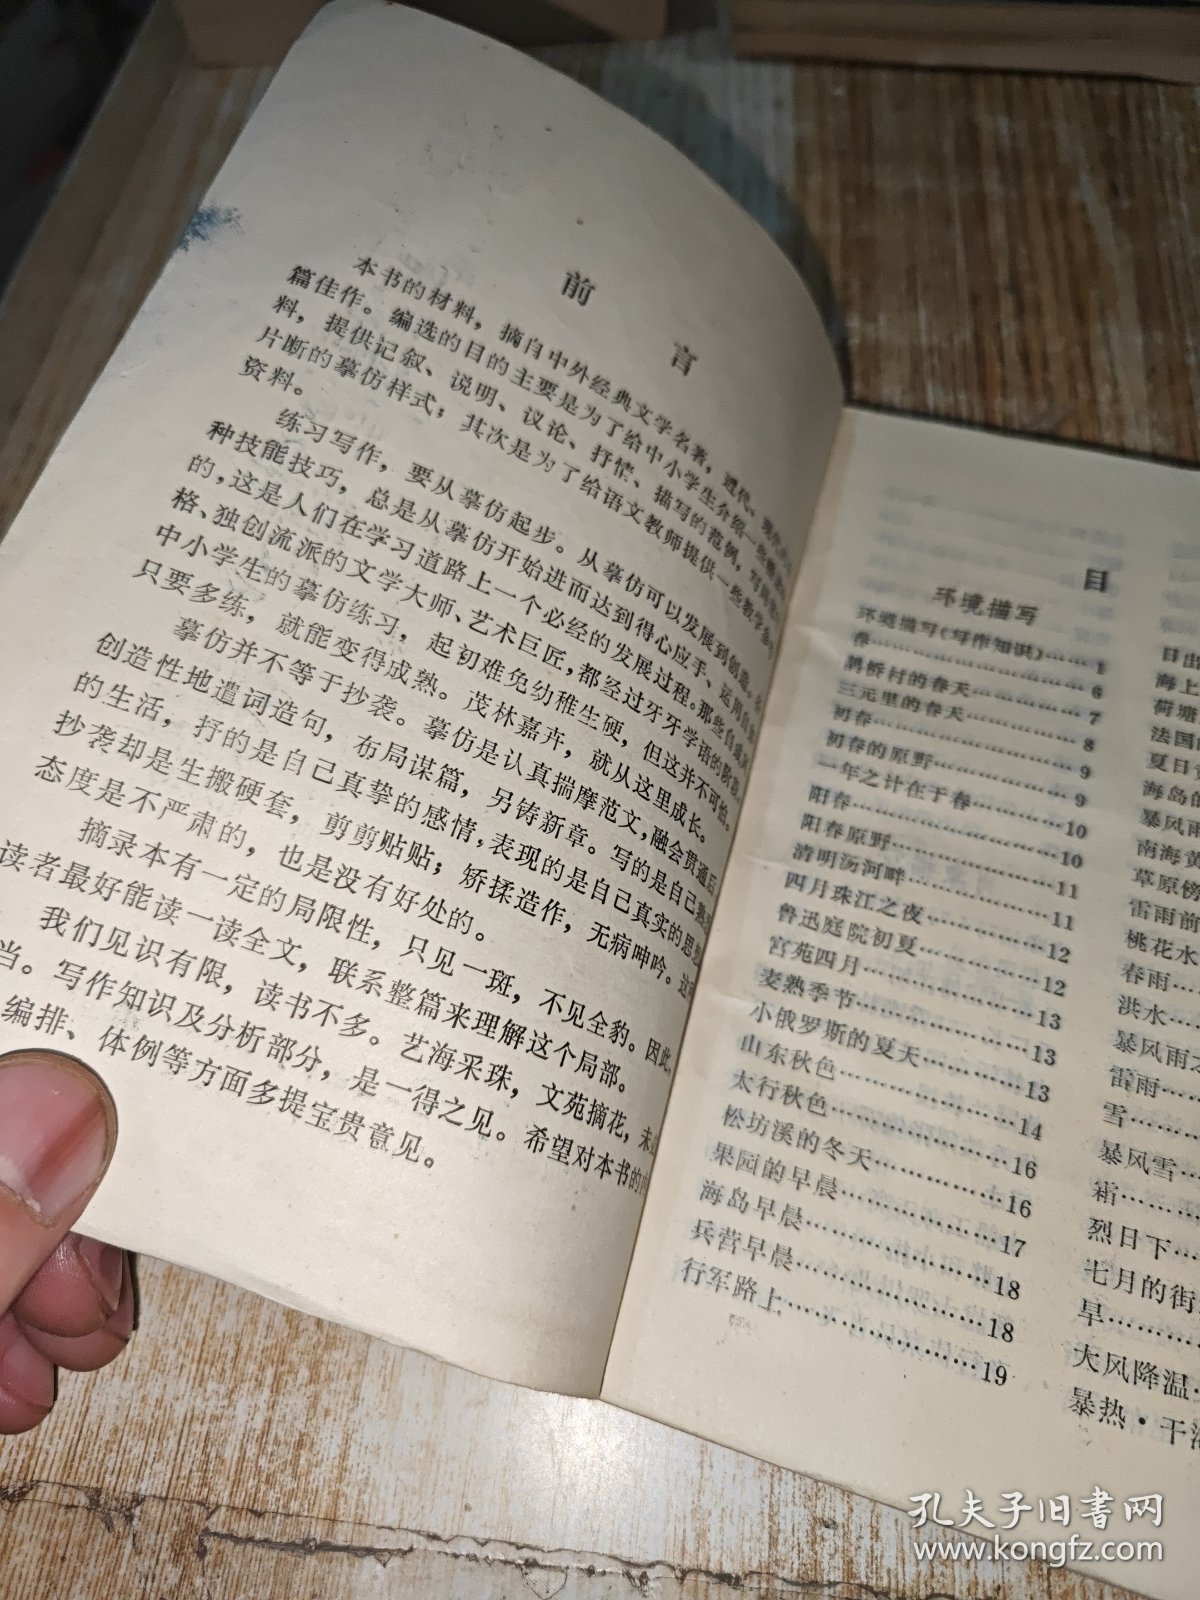 前言
本书的材料，摘自中外经典文学名著，近代、现代
篇佳作。编选的目的主要是为了给中小学生介绍一些
料，提供记叙、说明、议论、抒情、描写的范例，
片断的摹仿样式；其次是为了给语文教师提供一些教学参考
资料。
练习写作，要从摹仿起步。从摹仿可以发展到创造。
种技能技巧，总是从摹仿开始进而达到得心应手、运用自如
的，这是人们在学习道路上一个必经的发展过程。那些自成风
格、独创流派的文学大师、艺术巨匠，都经过牙牙学语的阶段。
中小学生的摹仿练习，起初难免幼稚生硬，但这并不可怕。
只要多练，就能变得成熟。茂林嘉卉，就从这里成长。
摹仿并不等于抄袭。摹仿是认真揣摩范文，融会贯通后
创造性地遣词造句，布局谋篇，另铸新章。写的是自己熟悉
的生活，抒的是自己真挚的感情，表现的是自己真实的思想
抄袭却是生搬硬套，剪剪贴贴；矫揉造作，无病呻吟。这
态度是不严肃的，也是没有好处的。
摘录本有一定的局限性，只见一斑，不见全豹。因此，
读者最好能读一读全文，联系整篇来理解这个局部。
我们见识有限，读书不多。艺海采珠，文苑摘花，未
当。写作知识及分析部分，是一得之见。希望对本书的
编排、体例等方面多提宝贵意见。
目
环境描写
环境描写（写作知识）……1
春……6
鹊桥村的春天……7
三元里的春天……8
初春……9
初春的原野……9
一年之计在于春……10
阳春……10
阳春原野……11
清明汤河畔……11
四月珠江之夜……12
鲁迅庭院初夏……12
宫苑四月……13
麦熟季节……13
小俄罗斯的夏天……13
山东秋色……14
太行秋色……16
松坊溪的冬天……16
果园的早晨……17
海岛早晨……18
兵营早晨……18
行军路上……19
日出
海上
荷塘
法国的
夏日
海岛的
暴风雨
南海黄
草原傍
雷雨前
桃花水
春雨……
洪水……
暴风雨之
雷雨……
雪……
暴风雪……
霜……
烈日下……
七月的街
旱……
大风降温
暴热·干
孔夫子旧书网
www.kongfz.com